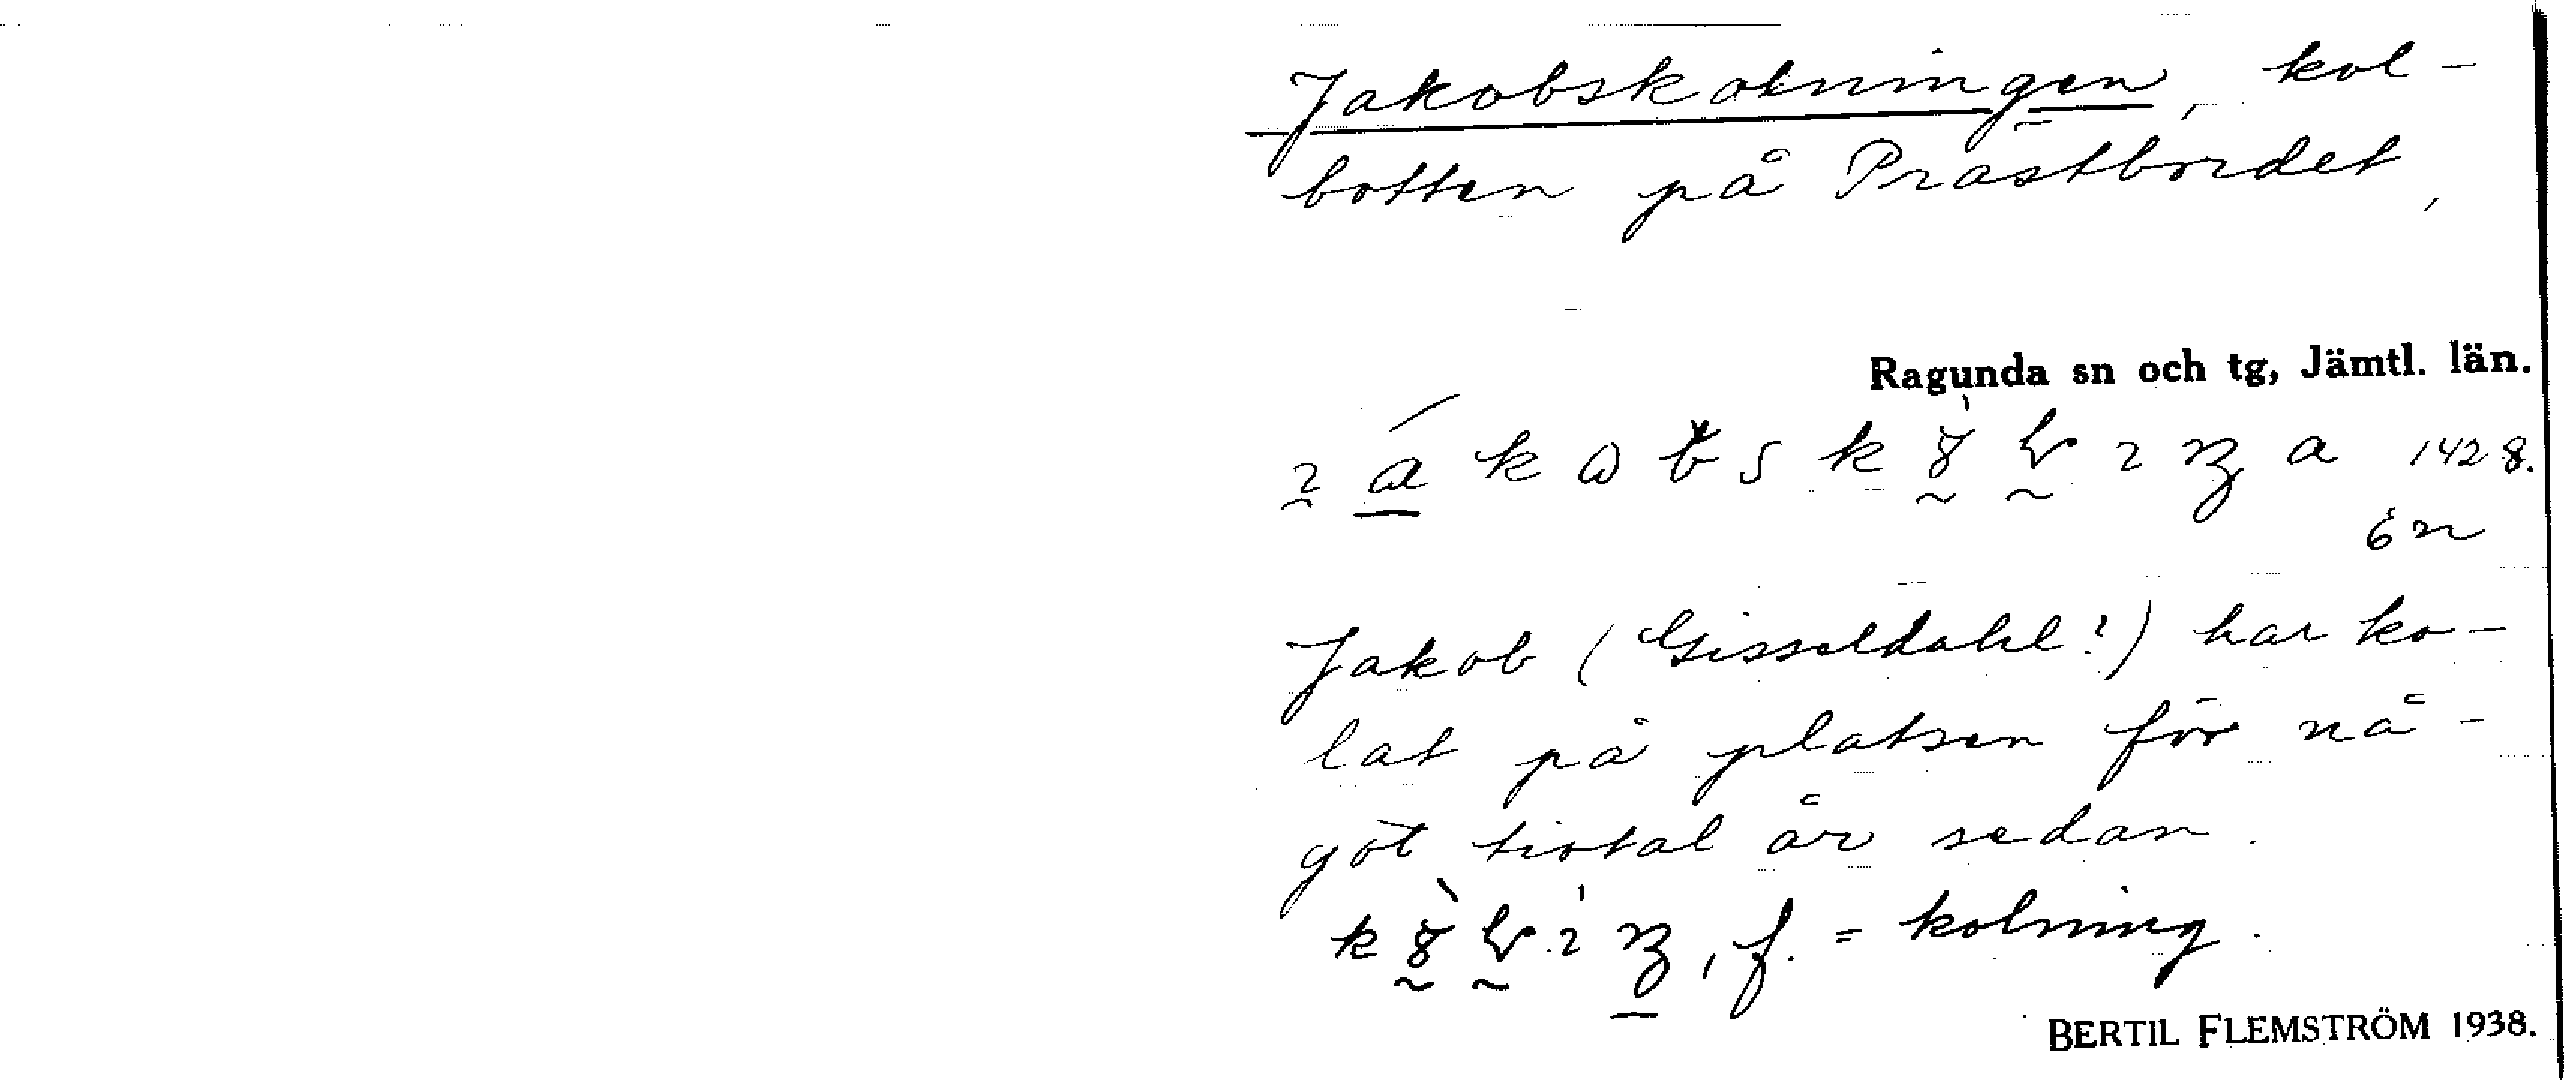 Jakobskolningen, kol-
botten på Prästbordet,
Ragunda sn och tg, Jämtl. län.
1428.
Jakob (Gisseldahl?) har ko-
lat på platsen för nå-
got tiotal år sedan.
f. = kolning.
BERTIL FLEMSTRÖM 1938.